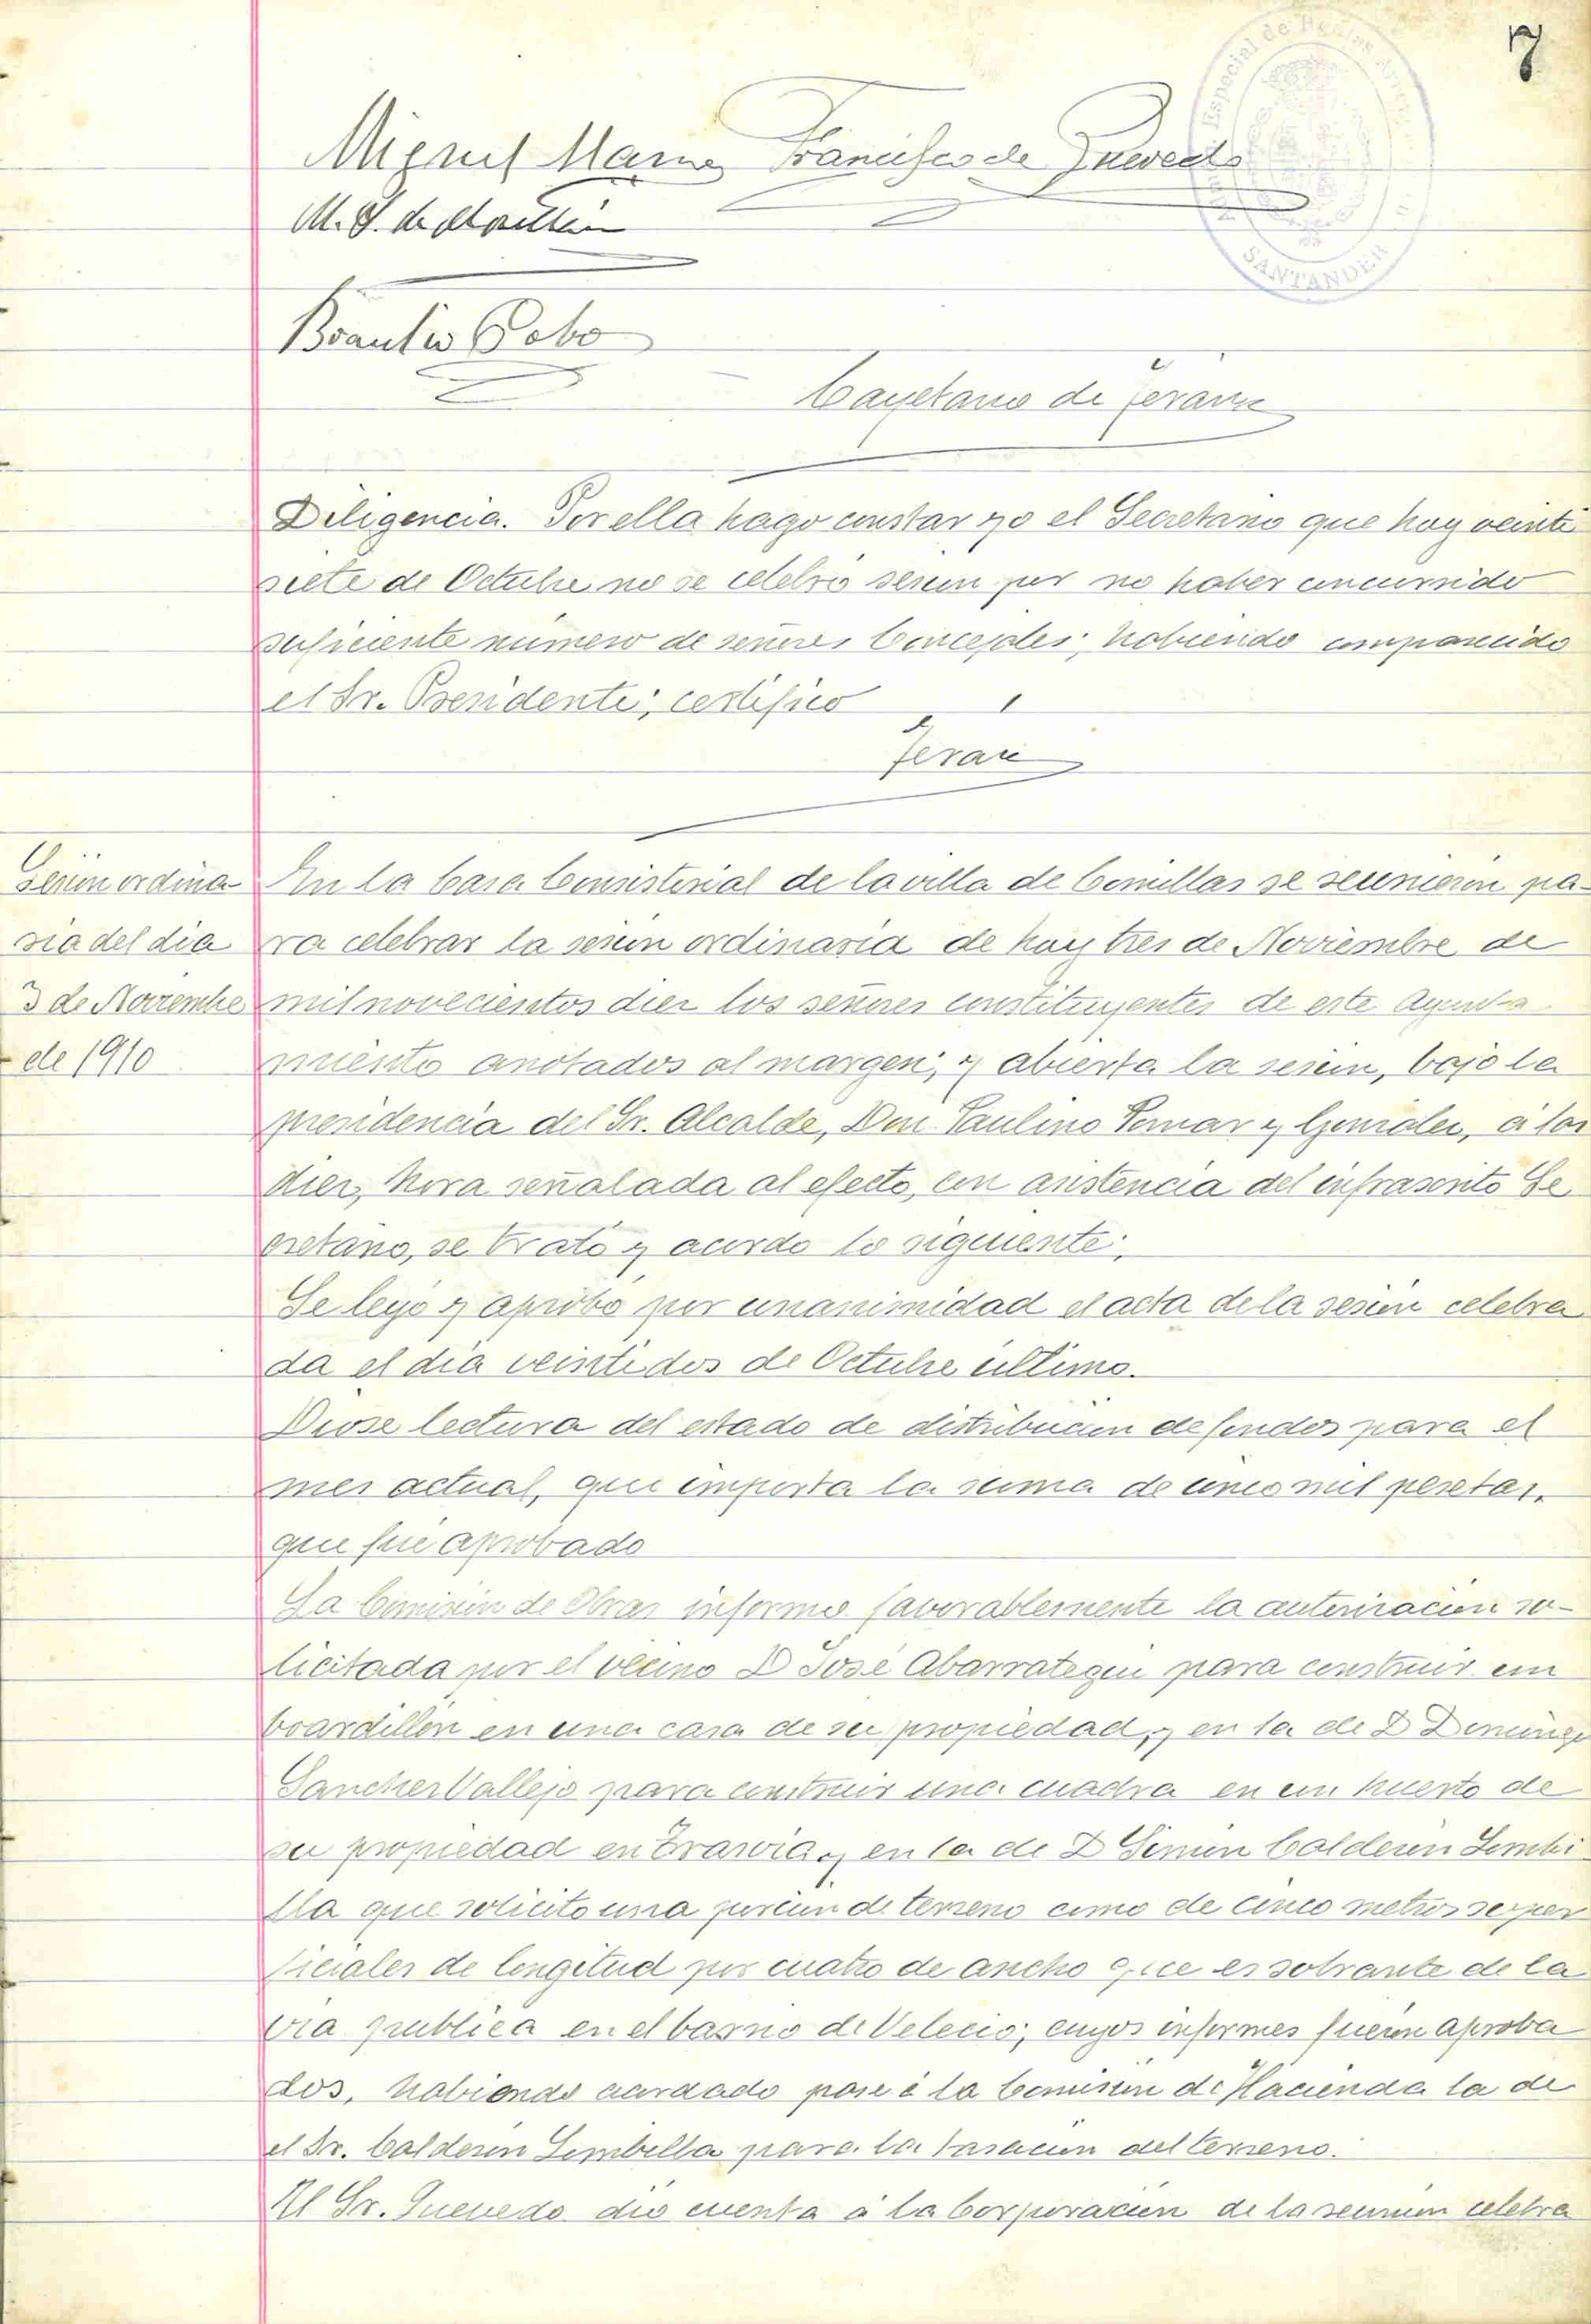 7
Especial de
SANTANDER
Miguel Francisco de Quevedo
M. S. de
Braulio Cobo
Cayetano de Teran
Diligencia. Por ella hago constar yo el Secretario que hoy veinti
siete de Octubre no se celebró sesion por no haber concurrido
suficiente número de señores Concejales; habiendo comparecido
el Sr. Presidente; certifico
Teran
Sesion ordina-
ria del dia
3 de Noviembre
de 1910
En la Casa Consistorial de la villa de Comillas se reunieron pa-
ra celebrar la sesion ordinaria de hoy tres de Noviembre de
mil novecientos diez los señores constituyentes de este Ayunta
miento anotados al margen; y abierta la sesion, bajo la
presidencia del Sr. Alcalde, Don Paulino Pomar y Gonzalez, á las
diez, hora señalada al efecto, con asistencia del infrascrito Se
cretario, se trató y acordo lo siguiente;
Se leyó y aprobó por unanimidad el acta de la sesion celebra
da el dia veintidos de Octubre último.
Diose lectura del estado de distribucion de fondos para el
mes actual, que importa la suma de cinco mil pesetas,
que fué aprobado
La Comision de Obras informo favorablemente la autorizacion so-
licitada por el vecino D José Abarrategui para construir un
boardillon en una casa de su propiedad, y en la de D Domingo
Sanchez Vallejo para construir una cuadra en un huerto de
su propiedad en Trasvia, y en la de D Simon Calderon Sombi
lla que solicito una porcion de terreno como de cinco metros super
ficiales de longitud por cuatro de ancho que es sobrante de la
via publica en el barrio de Velecio; cuyos informes fueron aproba
dos, habiendo acordado pase á la Comision de Hacienda la de
el Sr. Calderon Sombilla para la tasacion del terreno.
El Sr. Quevedo dió cuenta á la Corporacion de la reunion celebra